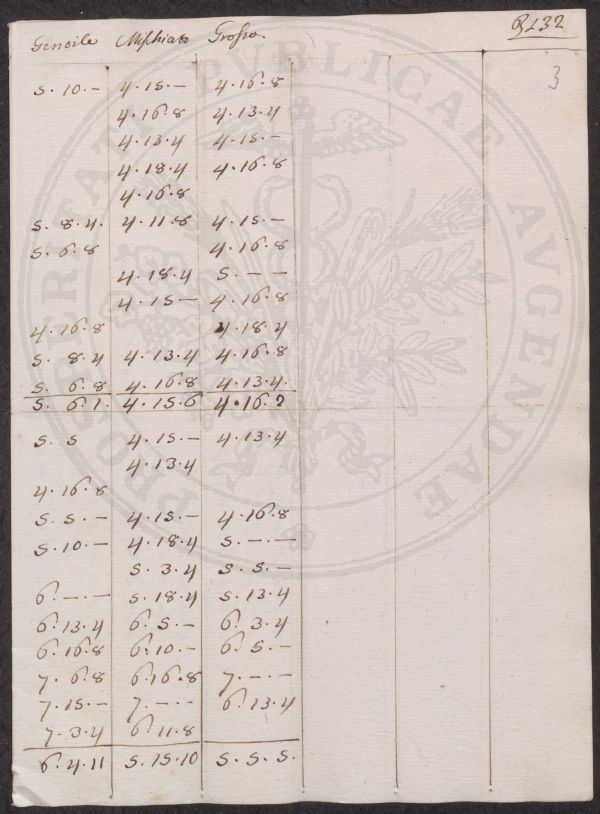 Gentile Mischiato Grosso.
3
5.10.— 4.15.— 4.16.8
4.16.8 4.13.4
4.13.4 4.15.—
4.18.4 4.16.8
4.16.8
5.8.4. 4.11.8 4.15.—
5.6.8 4.16.8
4.18.4 5.—.—
4.15.— 4.16.8
4.16.8 4.18.4
5.8.4 4.13.4 4.16.8
5.6.8 4.16.8 4.13.4.
5.6.1. 4.15.6 4.16.2
5.5 4.15.— 4.13.4
4.13.4
4.16.8
5.5.— 4.15.— 4.16.8
5.10.— 4.18.4 5.—.—
5.3.4 5.5.—
6.—.— 5.18.4 5.13.4
6.13.4 6.5.— 6.3.4
6.16.8 6.10.— 6.5.—
7.6.8 6.16.8 7.—.—
7.15.— 7.—.— 6.13.4
7.3.4 6.11.8
6.4.11 5.15.10 5.5.5.
PROSPERITATI PUBLICAE AVGENDAE